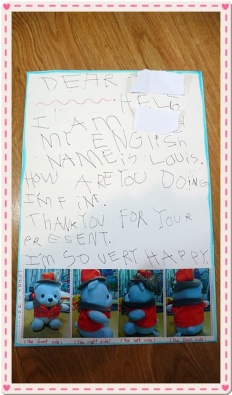 DEAR
HELO
I AM
MY ENGLISH
NAME is LOUIS.
HOW ARE YOU DOING
I'M FINE.
THANK YOU FOR YOUR
PRESENT.
I'M SO VERY HAPPY.
(The front side) (The left side) (The right side) (The back side)